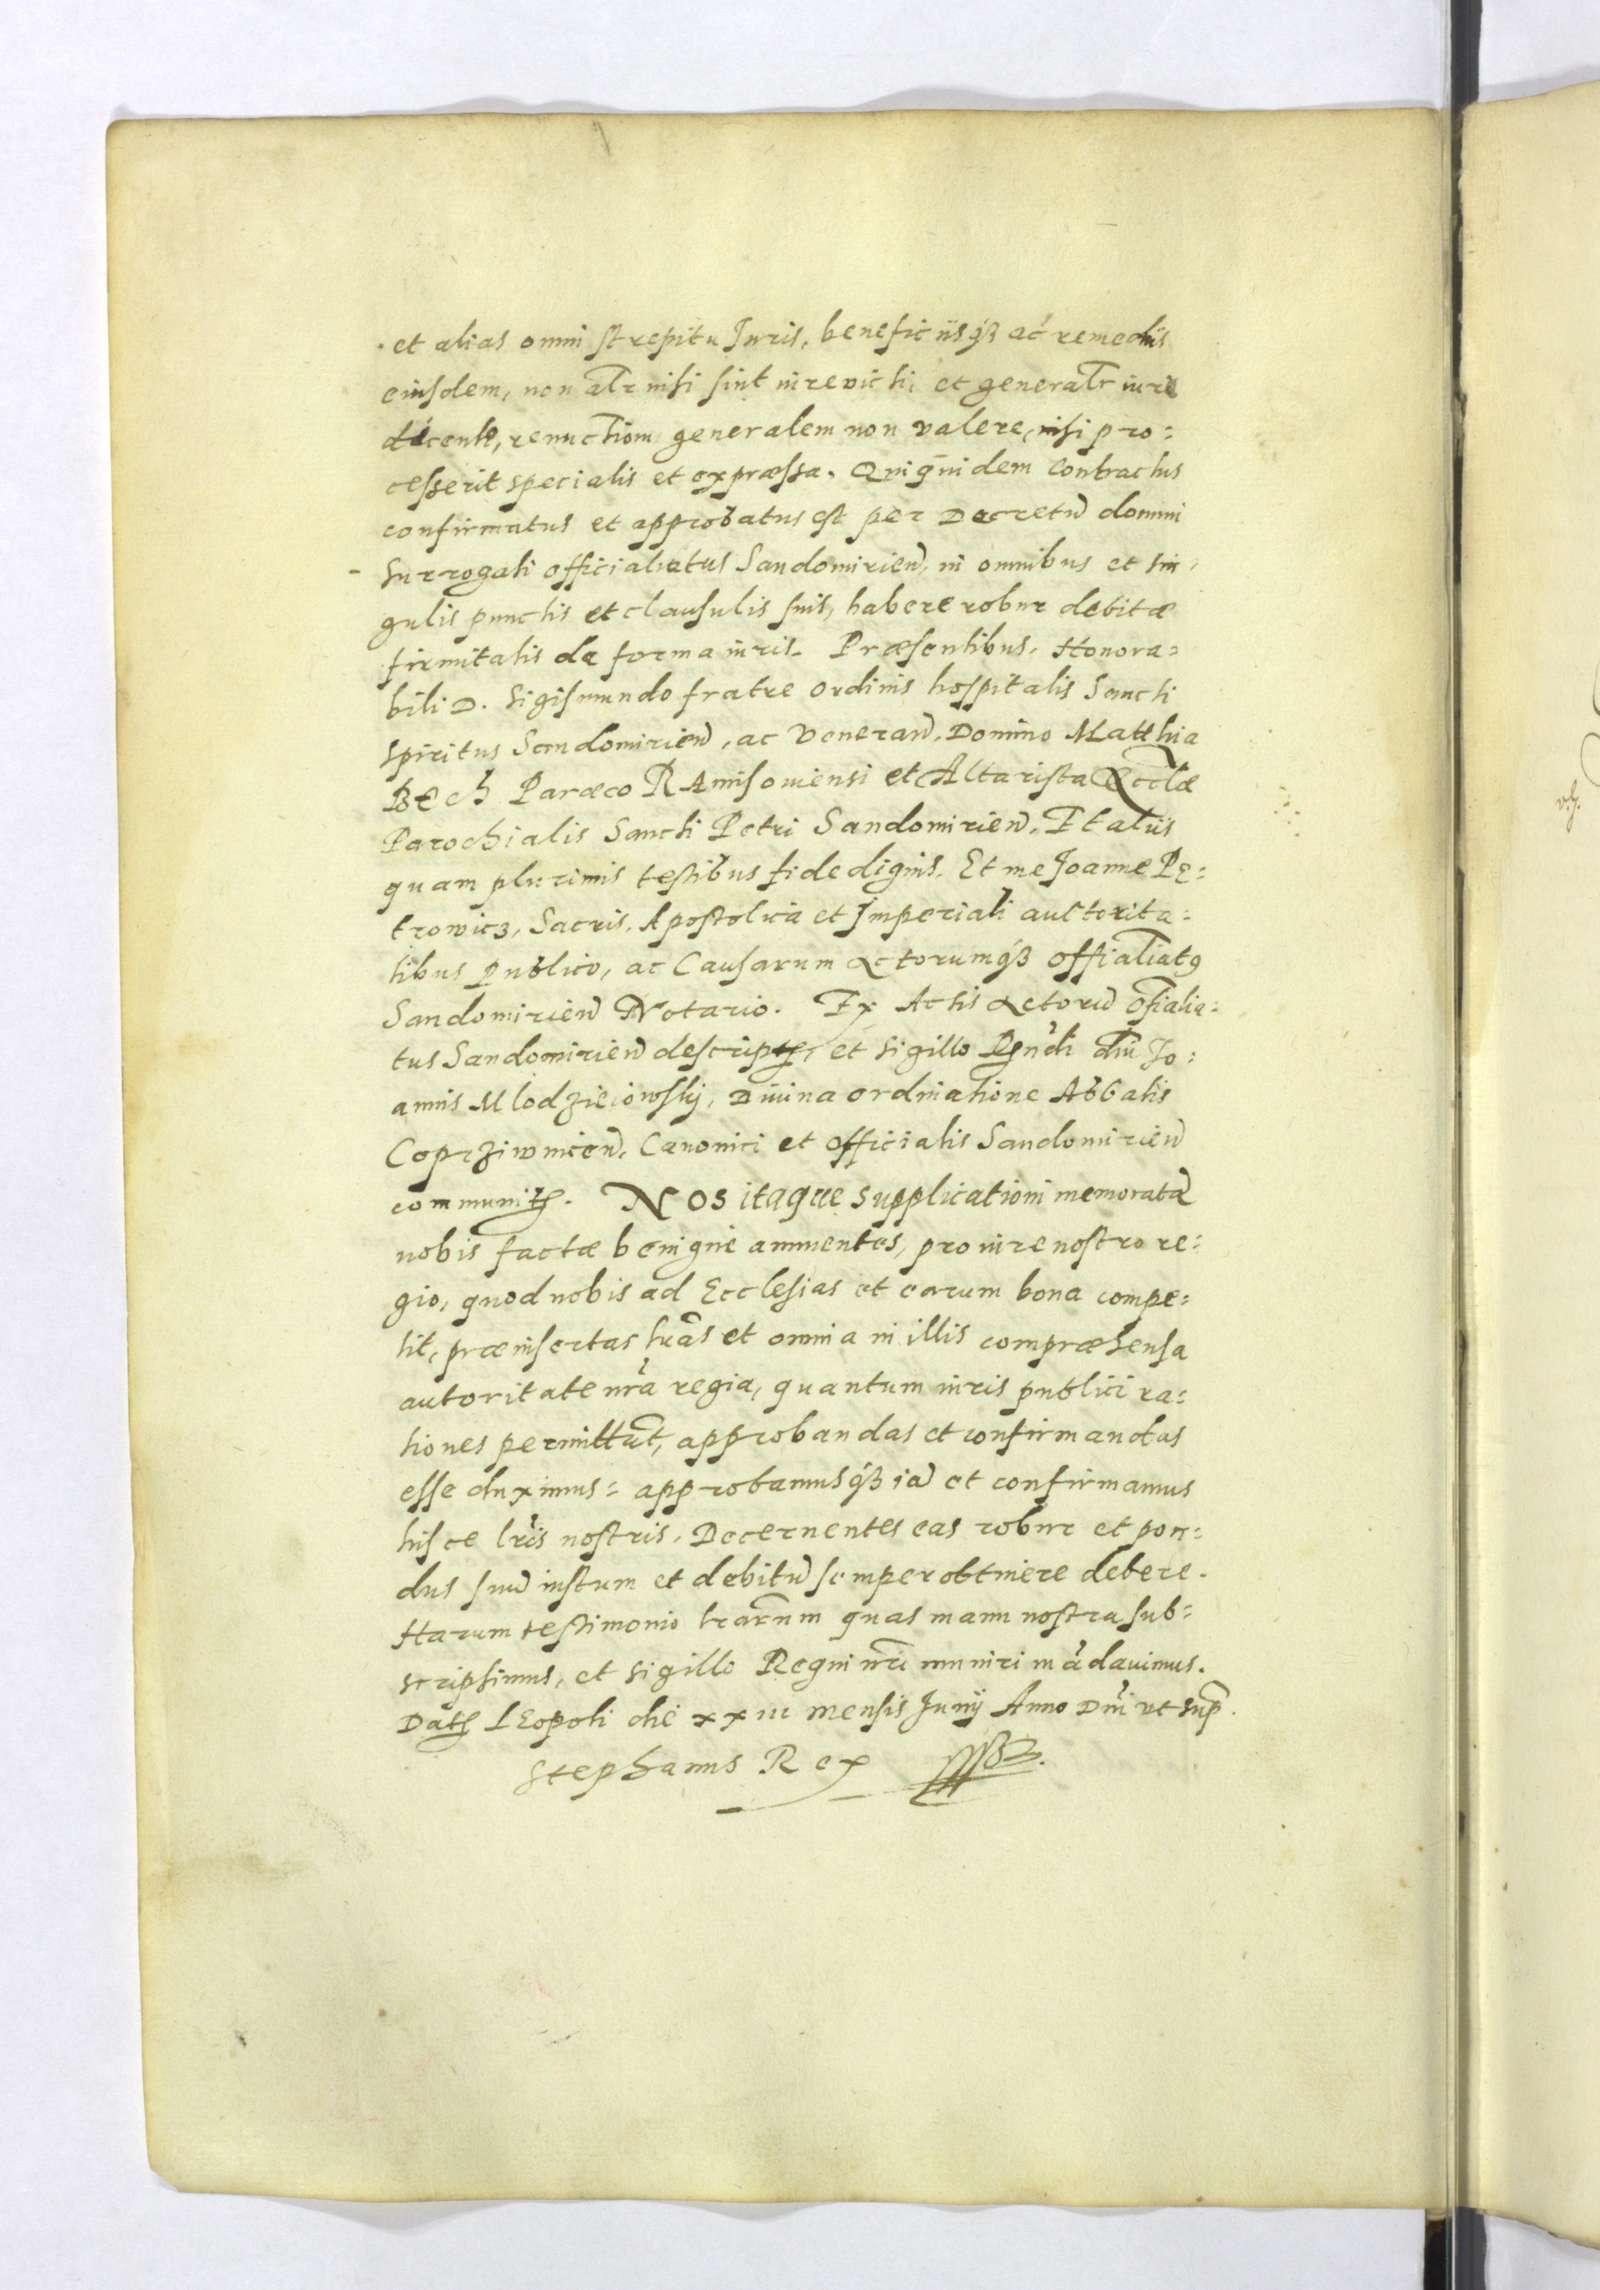 et alias omni strepitu Juris, beneficiisq3 ac remediis
eiusdem, non alr nisi sint in re victi, et generalr iure
dicente, renuctiom generalem non valere, nisi pro=
cesserit specialis et expræssa. Quiquidem Contractus
confirmatus et approbatus est per Decretu domini
Surrogati officialatus Sandomirien, in omnibus et sin=
gulis punctis et clausulis suis, habere robur debitæ
firmitatis de forma iuris. Præsentibus, Honora=
bili D. Sigismundo fratre ordinis hospitalis Sancti
spiritus Sandomirien, ac Veneran. Domino Matthia
Bech Paræco et Altarista Ecclæ
Parochialis Sancti Petri Sandomirien. Et aliis
quam plurimis testibus fide dignis. Et me Joanne Pe=
trowicz, Sacris, Apostolica et Imperiali auctorita=
tibus Publico, ac Causarum Actorumq3 offialiatq
Sandomirien Notario. Ex Actis Actoru ofialia=
tus Sandomirien descript, et sigillo Rndi dni Jo=
annis Mlodzieiowskij, Diuina ordinatione Abbatis
Coprziwnicen, Canonici et officialis Sandomirien
communit. NOS itaque supplicationi memoratæ
nobis factæ benigne annuentes, pro iure nostro re=
gio, quod nobis ad Ecclesias et earum bona compe=
tit, præinsertas lras et omnia in illis compræhensa
autoritate nra regia, quantum iuris publici ra=
tiones permittut, approbandas et confirmandas
esse duximus= approbamusq3 ia et confirmamus
hisce lris nostris. Decernentes eas robur et pon=
dus suu iustum et debitu semper obtinere debere.
Harum testimonio lrarum quas manu nostra sub=
scripsimus, et sigillo Regni nri muniri madauimus.
Dat LEopoli die xxiii mensis Junij Anno Dni vt sup.
Stephanus Rex